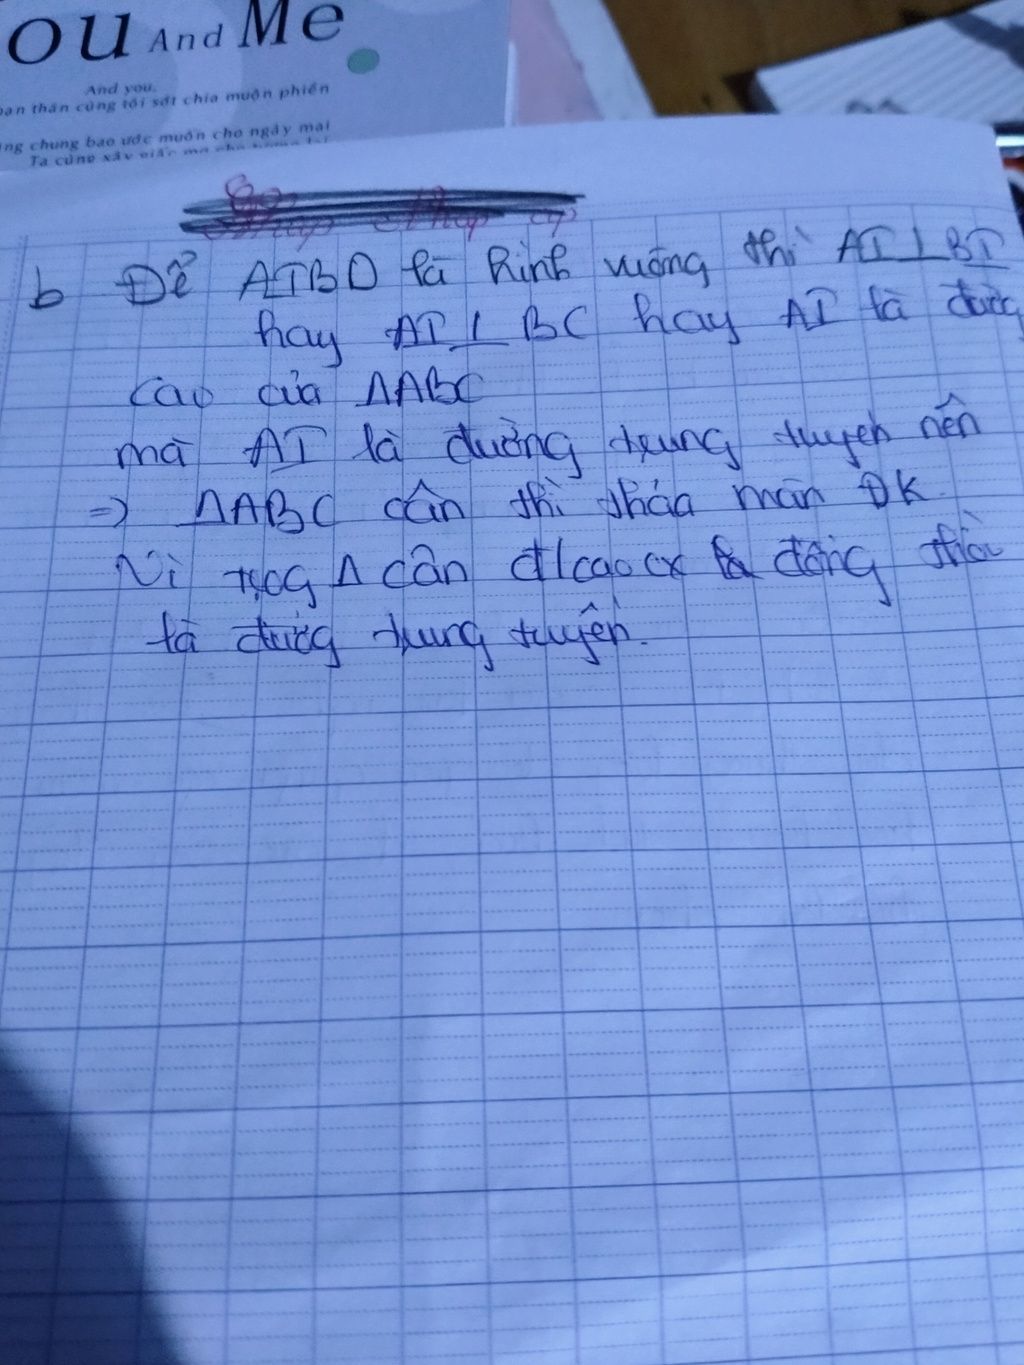 OU And Me
And you,
bạn thân cùng tôi sớt chia muộn phiền
ng chung bao ước muốn cho ngày mai
Ta cùng xây giấc mơ cho
b Để AIBD là hình vuông thì AI⊥BI
hay AI⊥BC hay AI là đường
cao của ΔABC
mà AI là đường trung tuyến nên
=> ΔABC cân thì thỏa mãn ĐK
Vì trog Δ cân đ/cao cx là đồng thời
là đường trung tuyến.